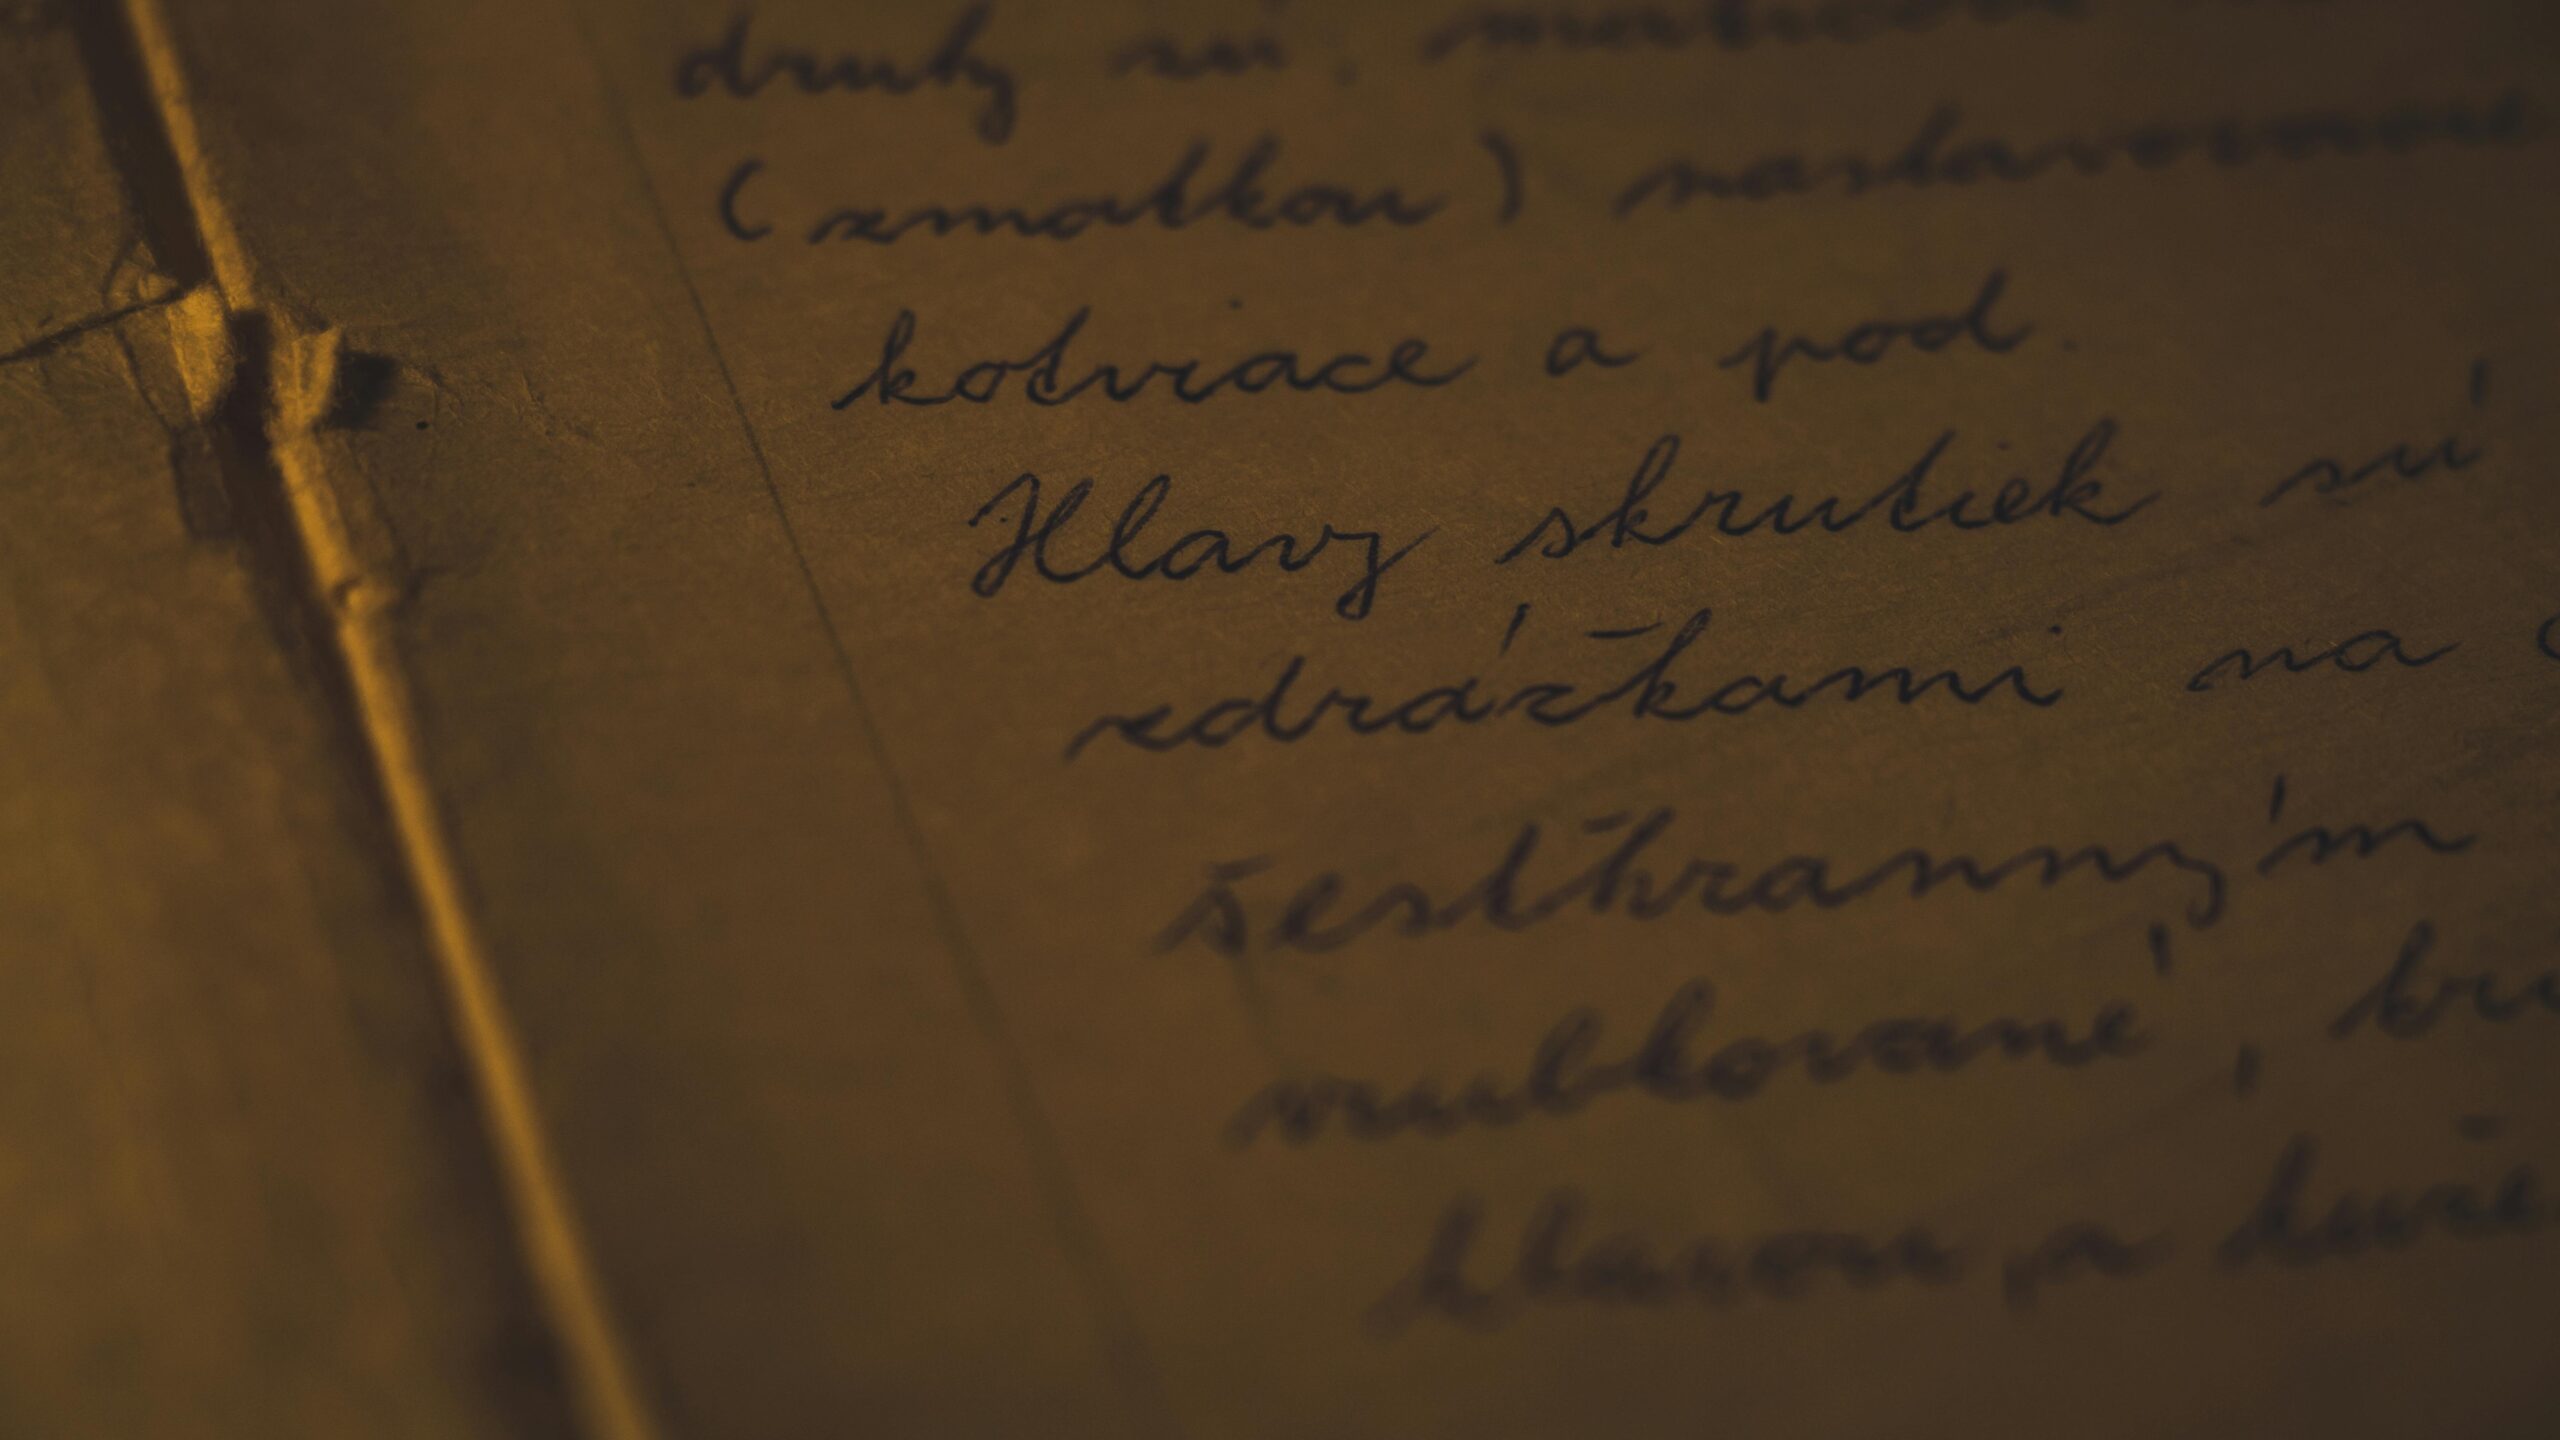 druhy sú,
(zmatkou) nastavovacie
kotviace a pod.
Hlavy skrutiek sú
zdrážkami na
šesťhranným
vrubkované,
hlavou, a